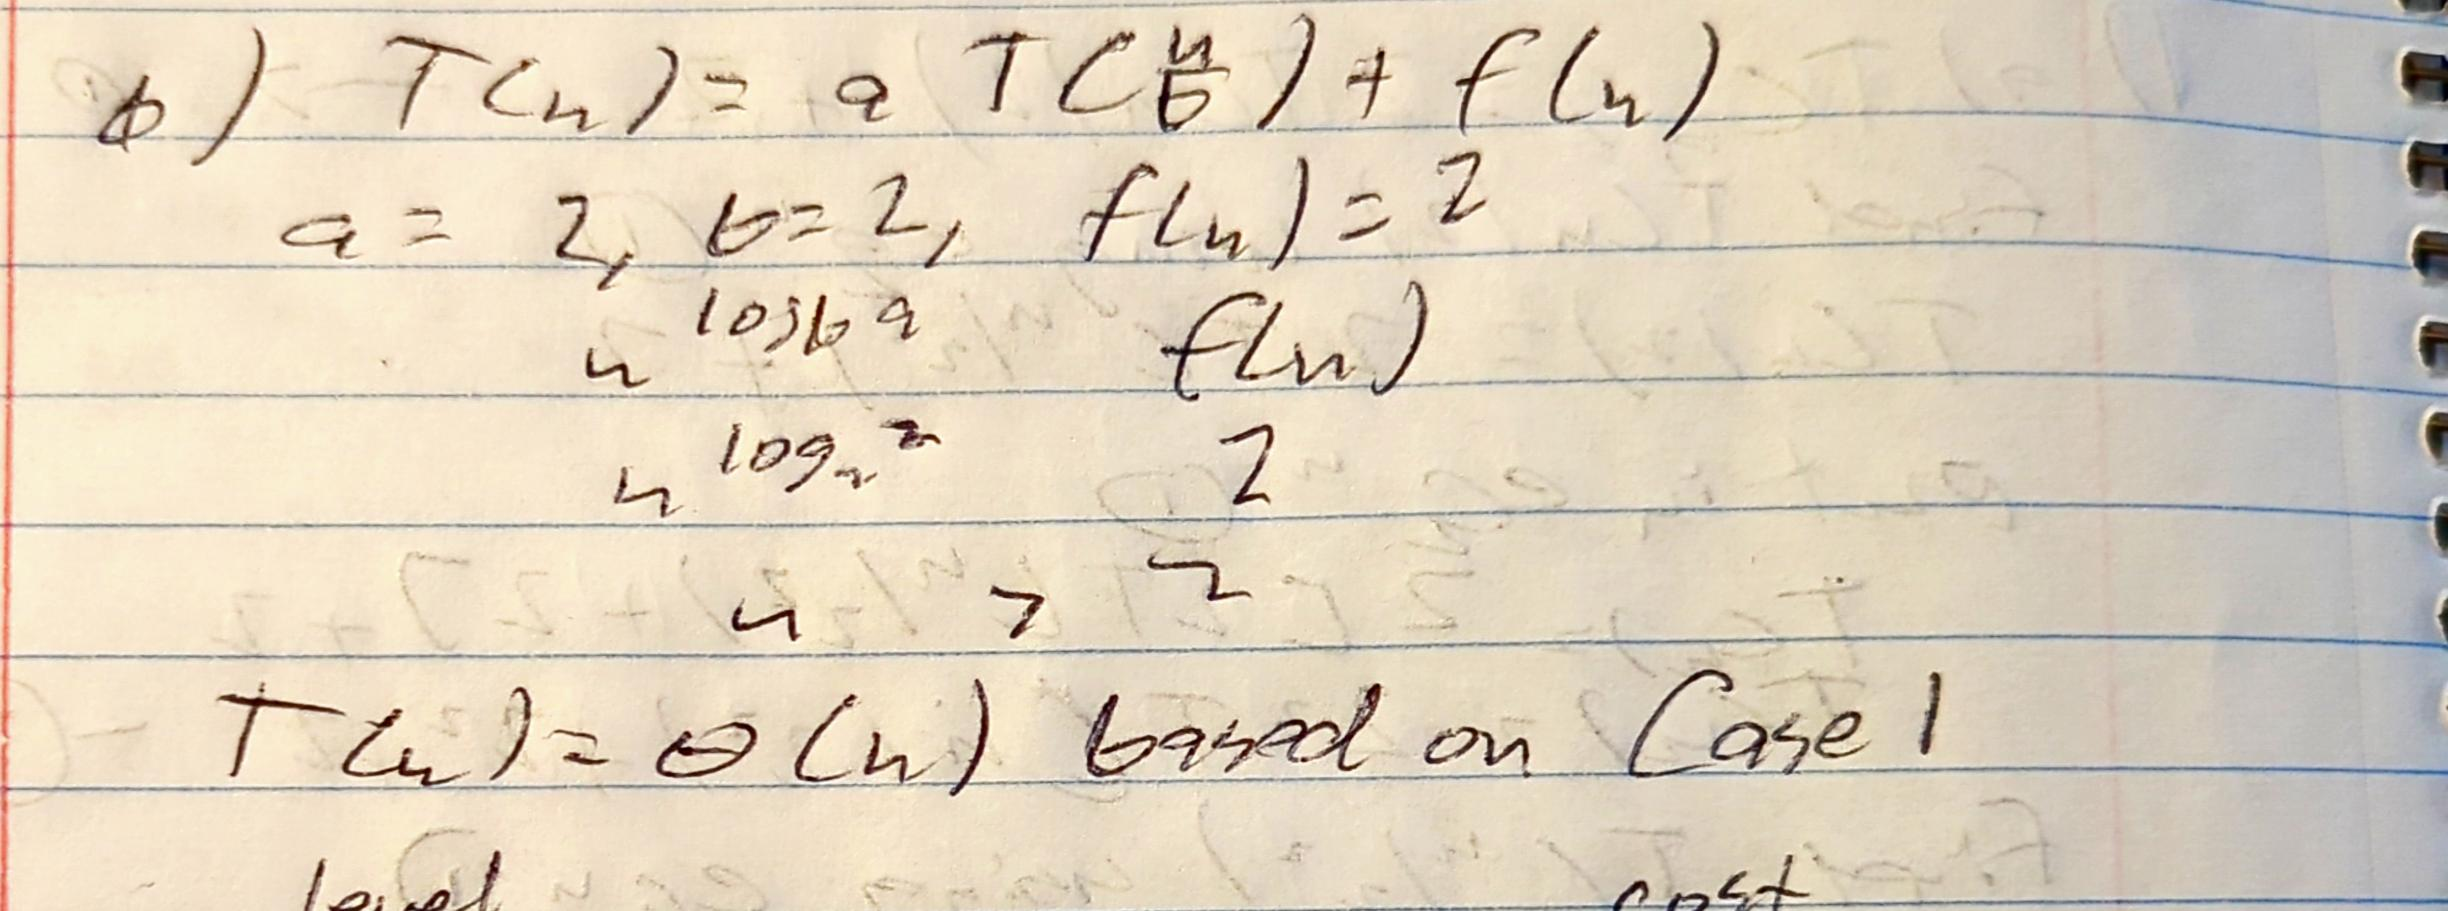 b) T(n) = a T(n/b) + f(n)
a = 2, b = 2, f(n) = 2
n^log_b a f(n)
n^log_2 2 2
n > 2
T(n) = θ(n) based on Case 1
level cost